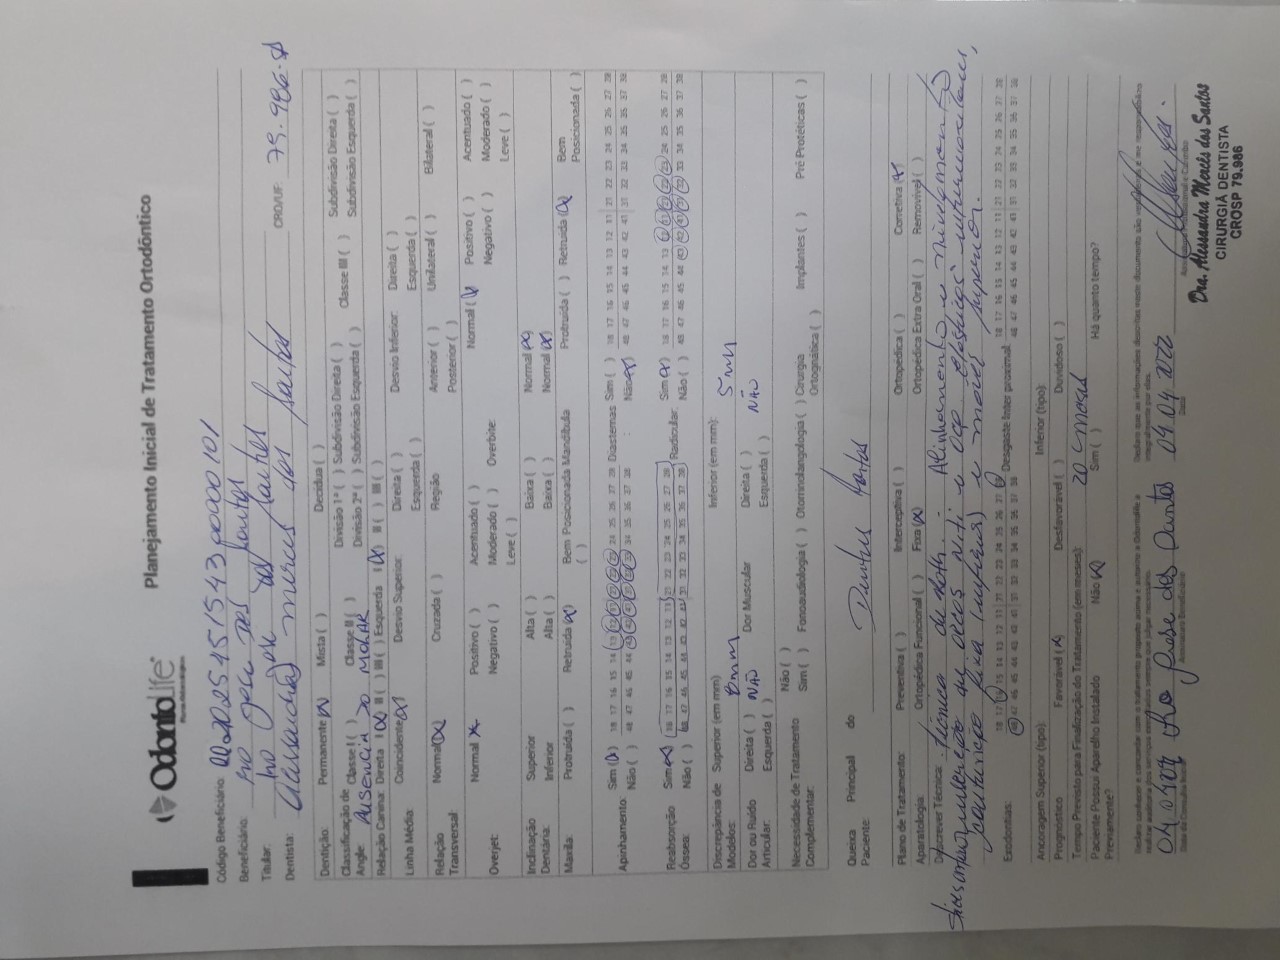 OdontoLife
Planos Odontológicos
Planejamento Inicial de Tratamento Ortodôntico
Código Beneficiário:
Beneficiário: José dos Santos
Titular: dos Santos
Dentista: Alessandra Mercês dos Santos CRO/UF: 79.986-
Dentição: Permanente (X) Mista ( ) Decídua ( )
Classificação de Angle: Classe I ( ) Classe II ( ) Divisão 1ª ( ) Subdivisão Direita ( ) Classe III ( ) Subdivisão Direita ( )
AUSENCIA DO MOLAR Divisão 2ª ( ) Subdivisão Esquerda ( ) Subdivisão Esquerda ( )
Relação Canina: Direita I (X) II ( ) III ( ) Esquerda I (X) II ( ) III ( )
Linha Média Coincidente (X) Desvio Superior: Direita ( ) Esquerda ( ) Desvio Inferior: Direita ( ) Esquerda ( )
Relação Transversal Normal (X) Cruzada ( ) Região Anterior ( ) Posterior ( ) Unilateral ( ) Bilateral ( )
Overjet: Normal X Positivo ( ) Negativo ( ) Acentuado ( ) Moderado ( ) Leve ( ) Overbite: Normal (X) Positivo ( ) Negativo ( ) Acentuado ( ) Moderado ( ) Leve ( )
Inclinação Dentária: Superior Alta ( ) Baixa ( ) Normal (X)
Inferior Alta ( ) Baixa ( ) Normal (X)
Maxila: Protruída ( ) Retruída (X) Bem Posicionada ( ) Mandíbula Protruída ( ) Retruída (X) Bem Posicionada ( )
Apinhamento: Sim (X) 18 17 16 15 14 13 12 11 21 22 23 24 25 26 27 28 Diastemas Sim ( ) 18 17 16 15 14 13 12 11 21 22 23 24 25 26 27 28
Não ( ) 48 47 46 45 44 43 42 41 31 32 33 34 35 36 37 38 Não (X) 48 47 46 45 44 43 42 41 31 32 33 34 35 36 37 38
Reabsorção Óssea: Sim (X) 18 17 16 15 14 13 12 11 21 22 23 24 25 26 27 28 Radicular: Sim (X) 18 17 16 15 14 13 12 11 21 22 23 24 25 26 27 28
Não ( ) 48 47 46 45 44 43 42 41 31 32 33 34 35 36 37 38 Não ( ) 48 47 46 45 44 43 42 41 31 32 33 34 35 36 37 38
Discrepância de Modelos: Superior (em mm) mm Inferior (em mm): 5 mm
Dor ou Ruído Articular: Direita ( ) NÃO Esquerda ( ) Dor Muscular Direita ( ) NÃO Esquerda ( )
Necessidade de Tratamento Complementar: Não ( )
Sim ( ) Fonoaudiologia ( ) Otorrinolaringologia ( ) Cirurgia Ortognática ( ) Implantes ( ) Pré Protéticas ( )
Queixa Principal do Paciente: Dentes
Plano de Tratamento: Preventiva ( ) Interceptiva ( ) Ortopédica ( ) Corretiva (X)
Aparatologia: Ortopédica Funcional ( ) Fixa (X) Ortopédica Extra Oral ( ) Removível ( )
Descrever Técnica: técnica de Roth. Alinhamento e nivelamento
de arcos niti e aço elásticos intermaxilares,
contenção fixa inferior e móvel superior.
Exodontias: 18 17 16 15 14 13 12 11 21 22 23 24 25 26 27 28 Desgaste Inter proximal: 18 17 16 15 14 13 12 11 21 22 23 24 25 26 27 28
48 47 46 45 44 43 42 41 31 32 33 34 35 36 37 38 48 47 46 45 44 43 42 41 31 32 33 34 35 36 37 38
Ancoragem Superior (tipo): Inferior (tipo):
Prognóstico Favorável (X Desfavorável ( ) Duvidoso ( )
Tempo Previsto para Finalização do Tratamento (em meses): 20 meses
Paciente Possui Aparelho Instalado Previamente? Não (X) Sim ( ) Há quanto tempo?
Data da Consulta Inicial
Assinatura Beneficiário
Data
Dra. Alessandra Mercês dos Santos
CIRURGIÃ DENTISTA
CROSP 79.986